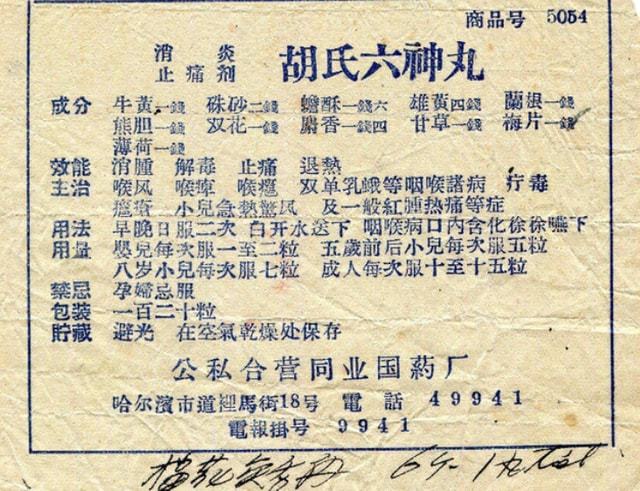 商品号 5054
消炎
止痛剂 胡氏六神丸
成分 牛黃一錢 硃砂二錢 蟾酥一錢六 雄黃四錢 蘭根一錢
熊胆一錢 双花一錢 麝香一錢四 甘草一錢 梅片一錢
薄荷一錢
效能 消腫 解毒 止痛 退熱
主治 喉风 喉痺 喉 双单乳蛾等咽喉諸病 疔毒
小兒急熱驚风 及一般紅腫热痛等症
用法 早晚日服二次 白开水送下 咽喉病口內含化徐徐嚥下
用量 嬰兒每次服一至二粒 五歲前后小兒每次服五粒
八岁小兒每次服七粒 成人每次服十至十五粒
禁忌 孕婦忌服
包装 一百二十粒
貯藏 避光 在空氣乾燥处保存
公私合营同业国药厂
哈尔濱市道裡馬街18号 電話 49941
電報掛号 9941